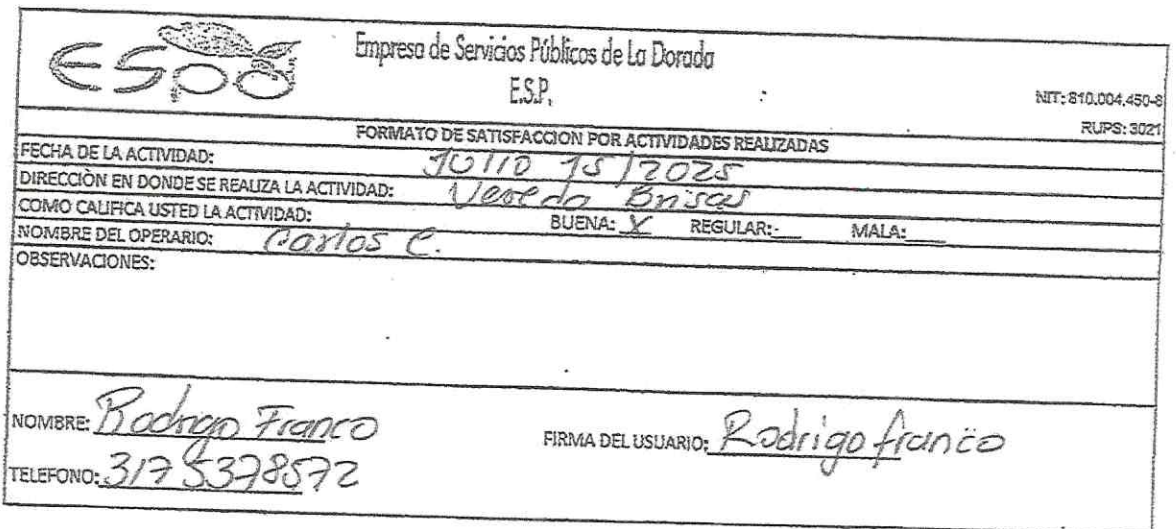 espd
Empresa de Servicios Públicos de La Dorada
E.S.P.
NIT: 810.004.450-8
RUPS: 3021
FORMATO DE SATISFACCION POR ACTIVIDADES REALIZADAS
FECHA DE LA ACTIVIDAD: Julio 15/2025
DIRECCIÒN EN DONDE SE REALIZA LA ACTIVIDAD: Vereda Brisas
COMO CALIFICA USTED LA ACTIVIDAD: BUENA: X REGULAR: MALA:
NOMBRE DEL OPERARIO: Carlos C.
OBSERVACIONES:
NOMBRE: Rodrigo Franco
FIRMA DEL USUARIO: Rodrigo franco
TELEFONO: 3175378572